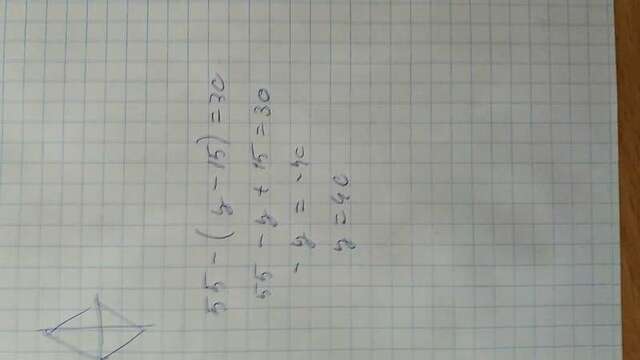 55 - (y - 15) = 30
55 - y + 15 = 30
- y = -40
y = 40